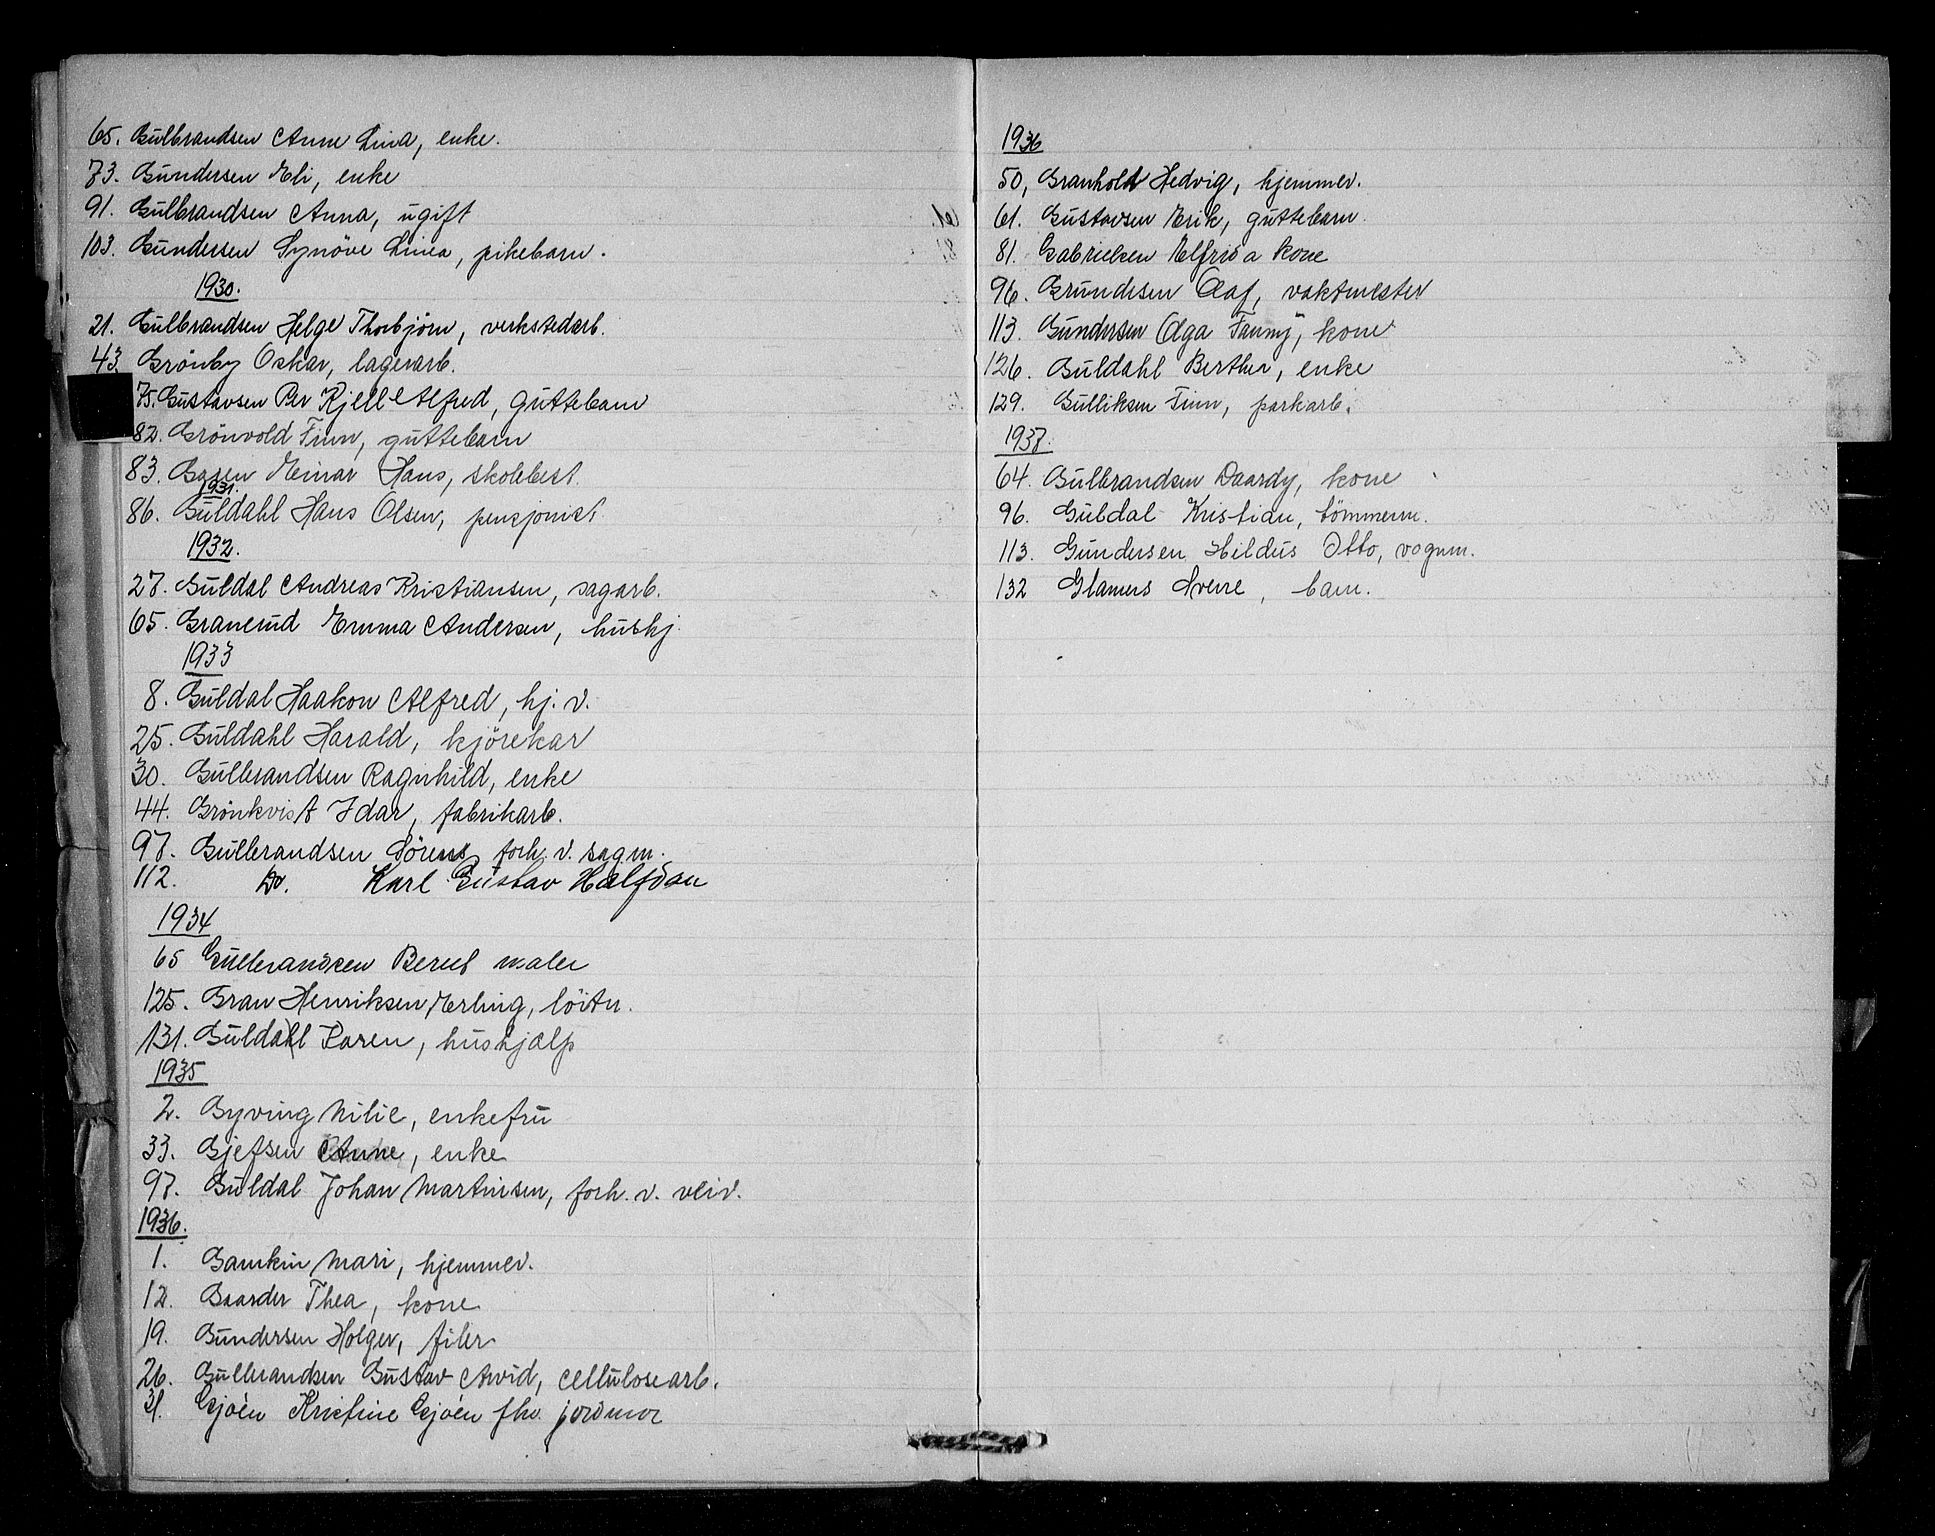 65. Gulbrandsen Anne Lina, enke.
73. Gundersen Eli, enke
91. Gulbrandsen Anna, ugift
103. Gundersen Synöve Linea, pikebarn.
1930.
21. Gulbrandsen Helge Thorbjörn, verkstedarb.
43. Grönby Oskar, lagerarb.
75. Gustavsen Per Kjell Alfred, guttebarn
82. Grönvold Finn, guttebarn
83. Einar Hans, skolebest.
1931.
86. Guldahl Hans Olsen, pensjonist
1932.
27. Guldal Andreas Kristiansen, sagarb.
65. Granerud Emma Andersen, hushj.
1933
8. Guldal Haakon Alfred, hj. v.
25. Guldahl Harald, kjörekar
30. Gulbrandsen Ragnhild, enke
44. Grönkvist Idar, fabrikarb.
97. Gulbrandsen Sörens, forh. v. sagm.
112. Do. Karl Gustav Halfdan
1934
65 Gulbrandsen Bernt maler
125. Gran Henriksen Erling, löitn.
131. Guldahl Karen, hushjælp
1935
2. Gyving Milie, enkefru
33. Gjefsen Anne, enke
97. Guldal Johan Martinsen, forh. v. veiv.
1936.
1. Gamkin Mari, hjemmev.
12. Gaarder Thea, kone
19. Gundersen Holger, filer
26. Gulbrandsen Gustav Arvid, cellulosearb.
31. Gjöen Kristine Gjöen fhv. jordmor
1936
50, Granholt Hedvig, hjemmev.
61. Gustavsen Erik, guttebarn.
81. Gabrielsen Elfrida kone
96. Grundesen Olaf, vaktmester
113. Gundersen Olga Fanny, kone
126. Guldahl Berthe, enke
129. Gulliksen Finn, parkarb.
1937.
64. Gulbrandsen Daardy, kone
96. Guldal Kristian, tömmerm.
113. Gundersen Hildus Otto, vognm.
132 Glamers Sverre, barn.